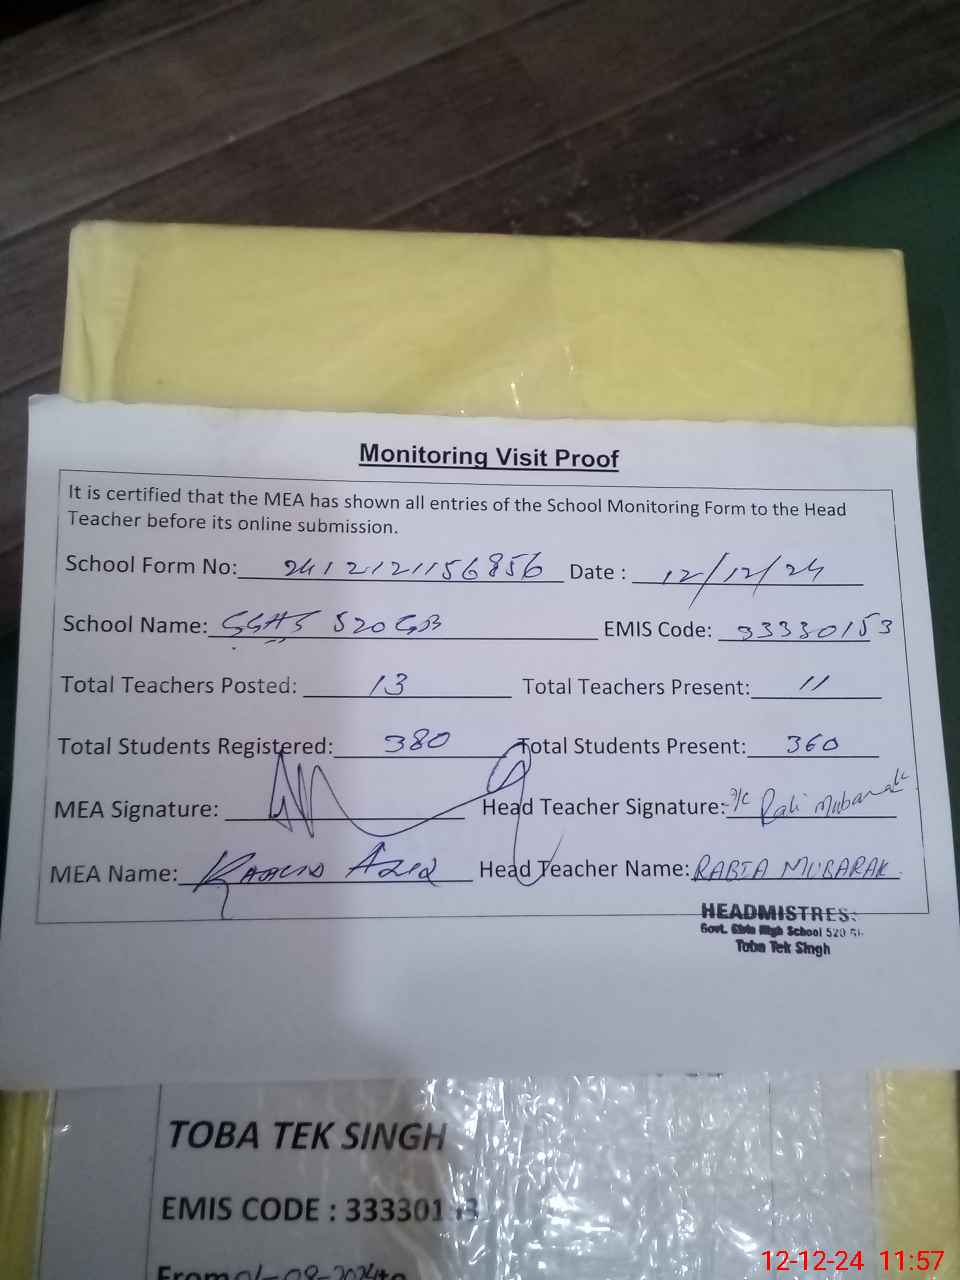 Monitoring Visit Proof
It is certified that the MEA has shown all entries of the School Monitoring Form to the Head
Teacher before its online submission.
School Form No: 2412121156856 Date : 12/12/24
School Name: GGHS 520 GB EMIS Code: 33330153
Total Teachers Posted: 13 Total Teachers Present: 11
Total Students Registered: 380 Total Students Present: 360
MEA Signature: Head Teacher Signature: Mubarak
MEA Name: Khalid Aziz Head Teacher Name: RABIA MUBARAK
HEADMISTRESS
Govt. Girls High School 520
Toba Tek Singh
TOBA TEK SINGH
EMIS CODE : 333301 3
From 01-08-2024 to
12-12-24 11:57